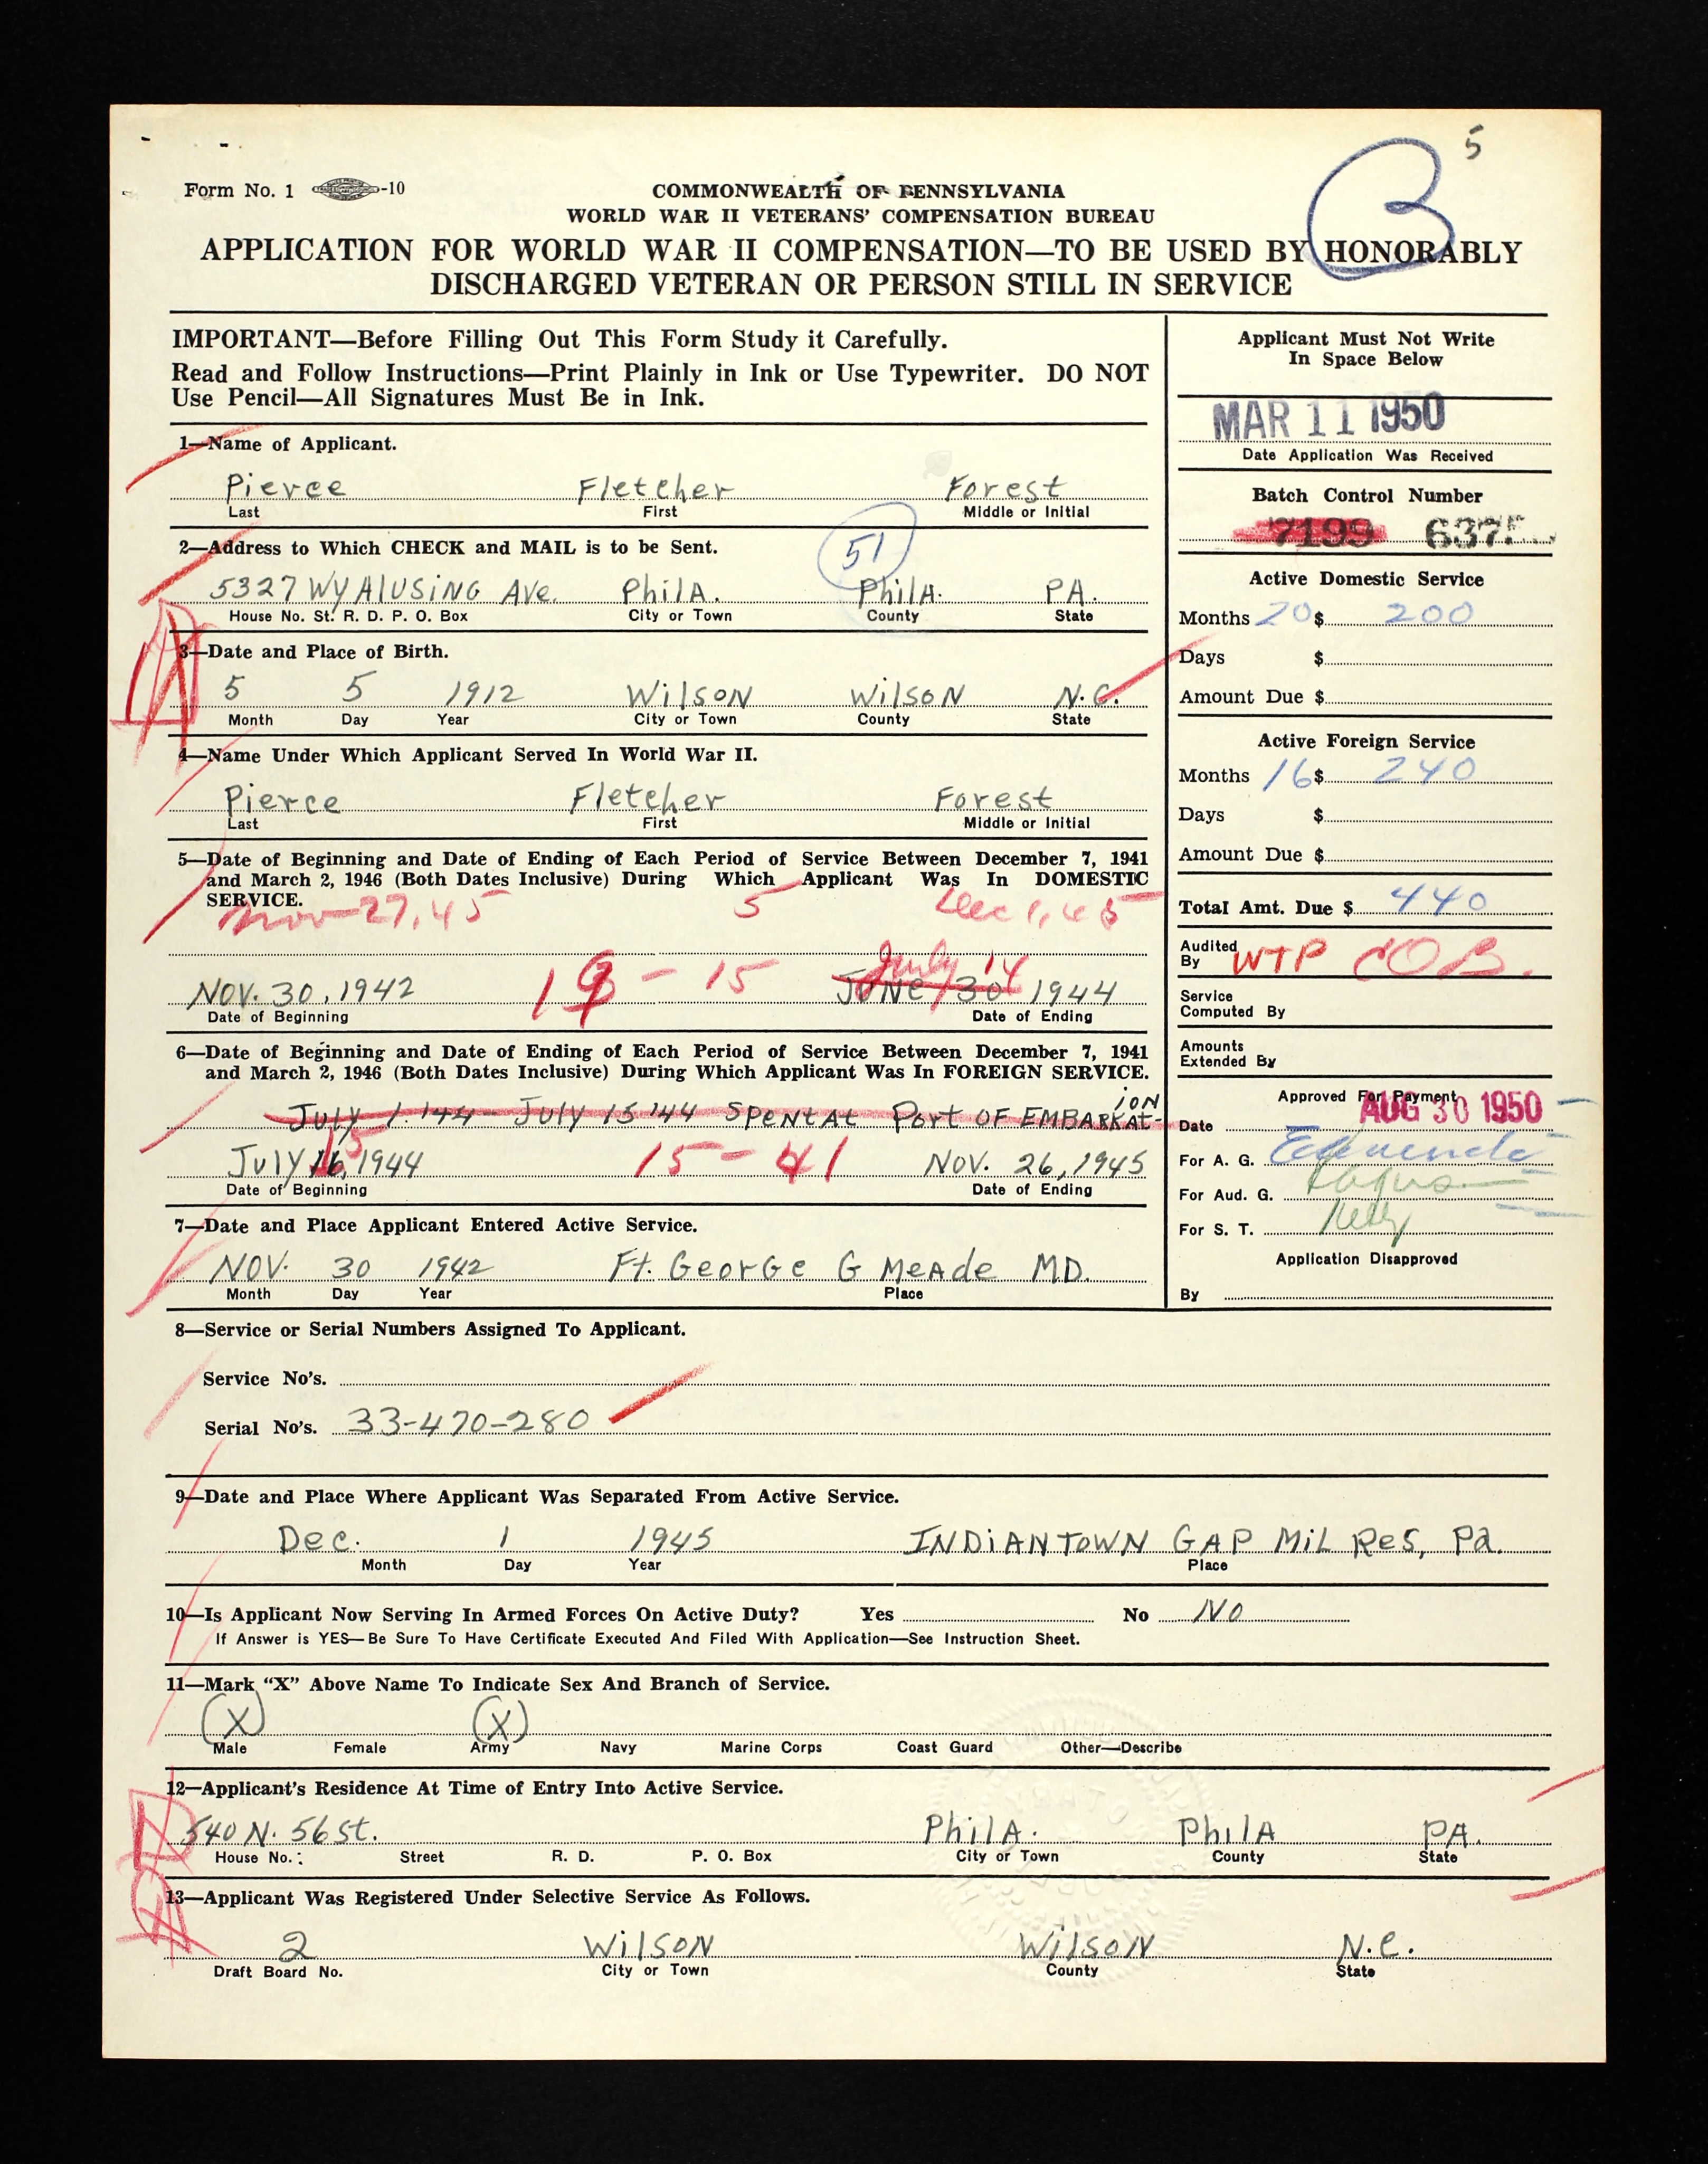 5
B
Form No. 1 -10
COMMONWEALTH OF PENNSYLVANIA
WORLD WAR II VETERANS' COMPENSATION BUREAU
APPLICATION FOR WORLD WAR II COMPENSATION—TO BE USED BY HONORABLY
DISCHARGED VETERAN OR PERSON STILL IN SERVICE
IMPORTANT—Before Filling Out This Form Study it Carefully.
Read and Follow Instructions—Print Plainly in Ink or Use Typewriter. DO NOT
Use Pencil—All Signatures Must Be in Ink.
1—Name of Applicant.
Pierce Fletcher Forest
Last First Middle or Initial
2—Address to Which CHECK and MAIL is to be Sent.
51
5327 WYAlUSiNG Ave. PhilA. PhilA. PA.
House No. St. R. D. P. O. Box City or Town County State
3—Date and Place of Birth.
5 5 1912 WilSON WilSON N.C.
Month Day Year City or Town County State
4—Name Under Which Applicant Served In World War II.
Pierce Fletcher Forest
Last First Middle or Initial
5—Date of Beginning and Date of Ending of Each Period of Service Between December 7, 1941
and March 2, 1946 (Both Dates Inclusive) During Which Applicant Was In DOMESTIC
SERVICE.
Nov-27,45 5 Dec 1,45
July 14
NOV. 30, 1942 19 - 15 JUNE 30 1944
Date of Beginning Date of Ending
6—Date of Beginning and Date of Ending of Each Period of Service Between December 7, 1941
and March 2, 1946 (Both Dates Inclusive) During Which Applicant Was In FOREIGN SERVICE.
July 1 '44 - July 15 '44 SPENT At Port OF EMBARKAT-ION
15
July 16, 1944 15 - 41 NOV. 26, 1945
Date of Beginning Date of Ending
7—Date and Place Applicant Entered Active Service.
NOV. 30 1942 Ft. GeorGe G MeAde MD.
Month Day Year Place
Applicant Must Not Write
In Space Below
MAR 11 1950
Date Application Was Received
Batch Control Number
7199
Active Domestic Service
Months 20 $ 200
Days $
Amount Due $
Active Foreign Service
Months 16 $ 240
Days $
Amount Due $
Total Amt. Due $ 440
Audited By WTP COB.
Service
Computed By
Amounts
Extended By
Approved For Payment
Date AUG 30 1950
For A. G.
For Aud. G.
For S. T.
Application Disapproved
By
8—Service or Serial Numbers Assigned To Applicant.
Service No's.
Serial No's. 33-470-280
9—Date and Place Where Applicant Was Separated From Active Service.
Dec. 1 1945 INDiANTOWN GAP MiL Res, Pa.
Month Day Year Place
10—Is Applicant Now Serving In Armed Forces On Active Duty? Yes No NO
If Answer is YES—Be Sure To Have Certificate Executed And Filed With Application—See Instruction Sheet.
11—Mark "X" Above Name To Indicate Sex And Branch of Service.
(X) (X)
Male Female Army Navy Marine Corps Coast Guard Other—Describe
12—Applicant's Residence At Time of Entry Into Active Service.
540 N. 56 St. PhilA. PhilA PA.
House No. Street R. D. P. O. Box City or Town County State
13—Applicant Was Registered Under Selective Service As Follows.
2 WilSON WilSON N.C.
Draft Board No. City or Town County State